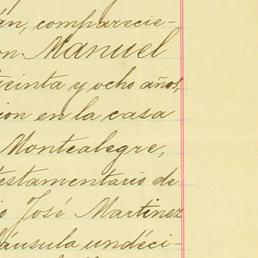 án, comparecie-
on Manuel
treinta y ocho años,
ion en la casa
Montealegre,
testamentario de
o José Martinez
láusula undéci-